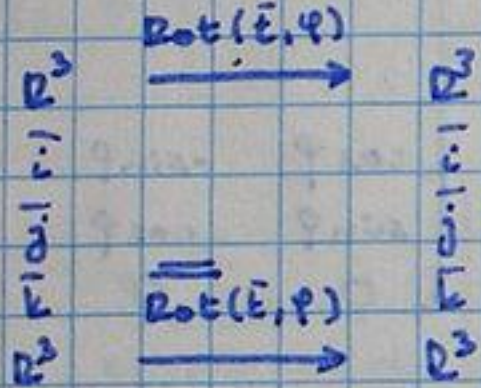 Rot(t̄, φ)
R³ → R³
i, j, k
Rot(t̄, φ)
R³ → R³